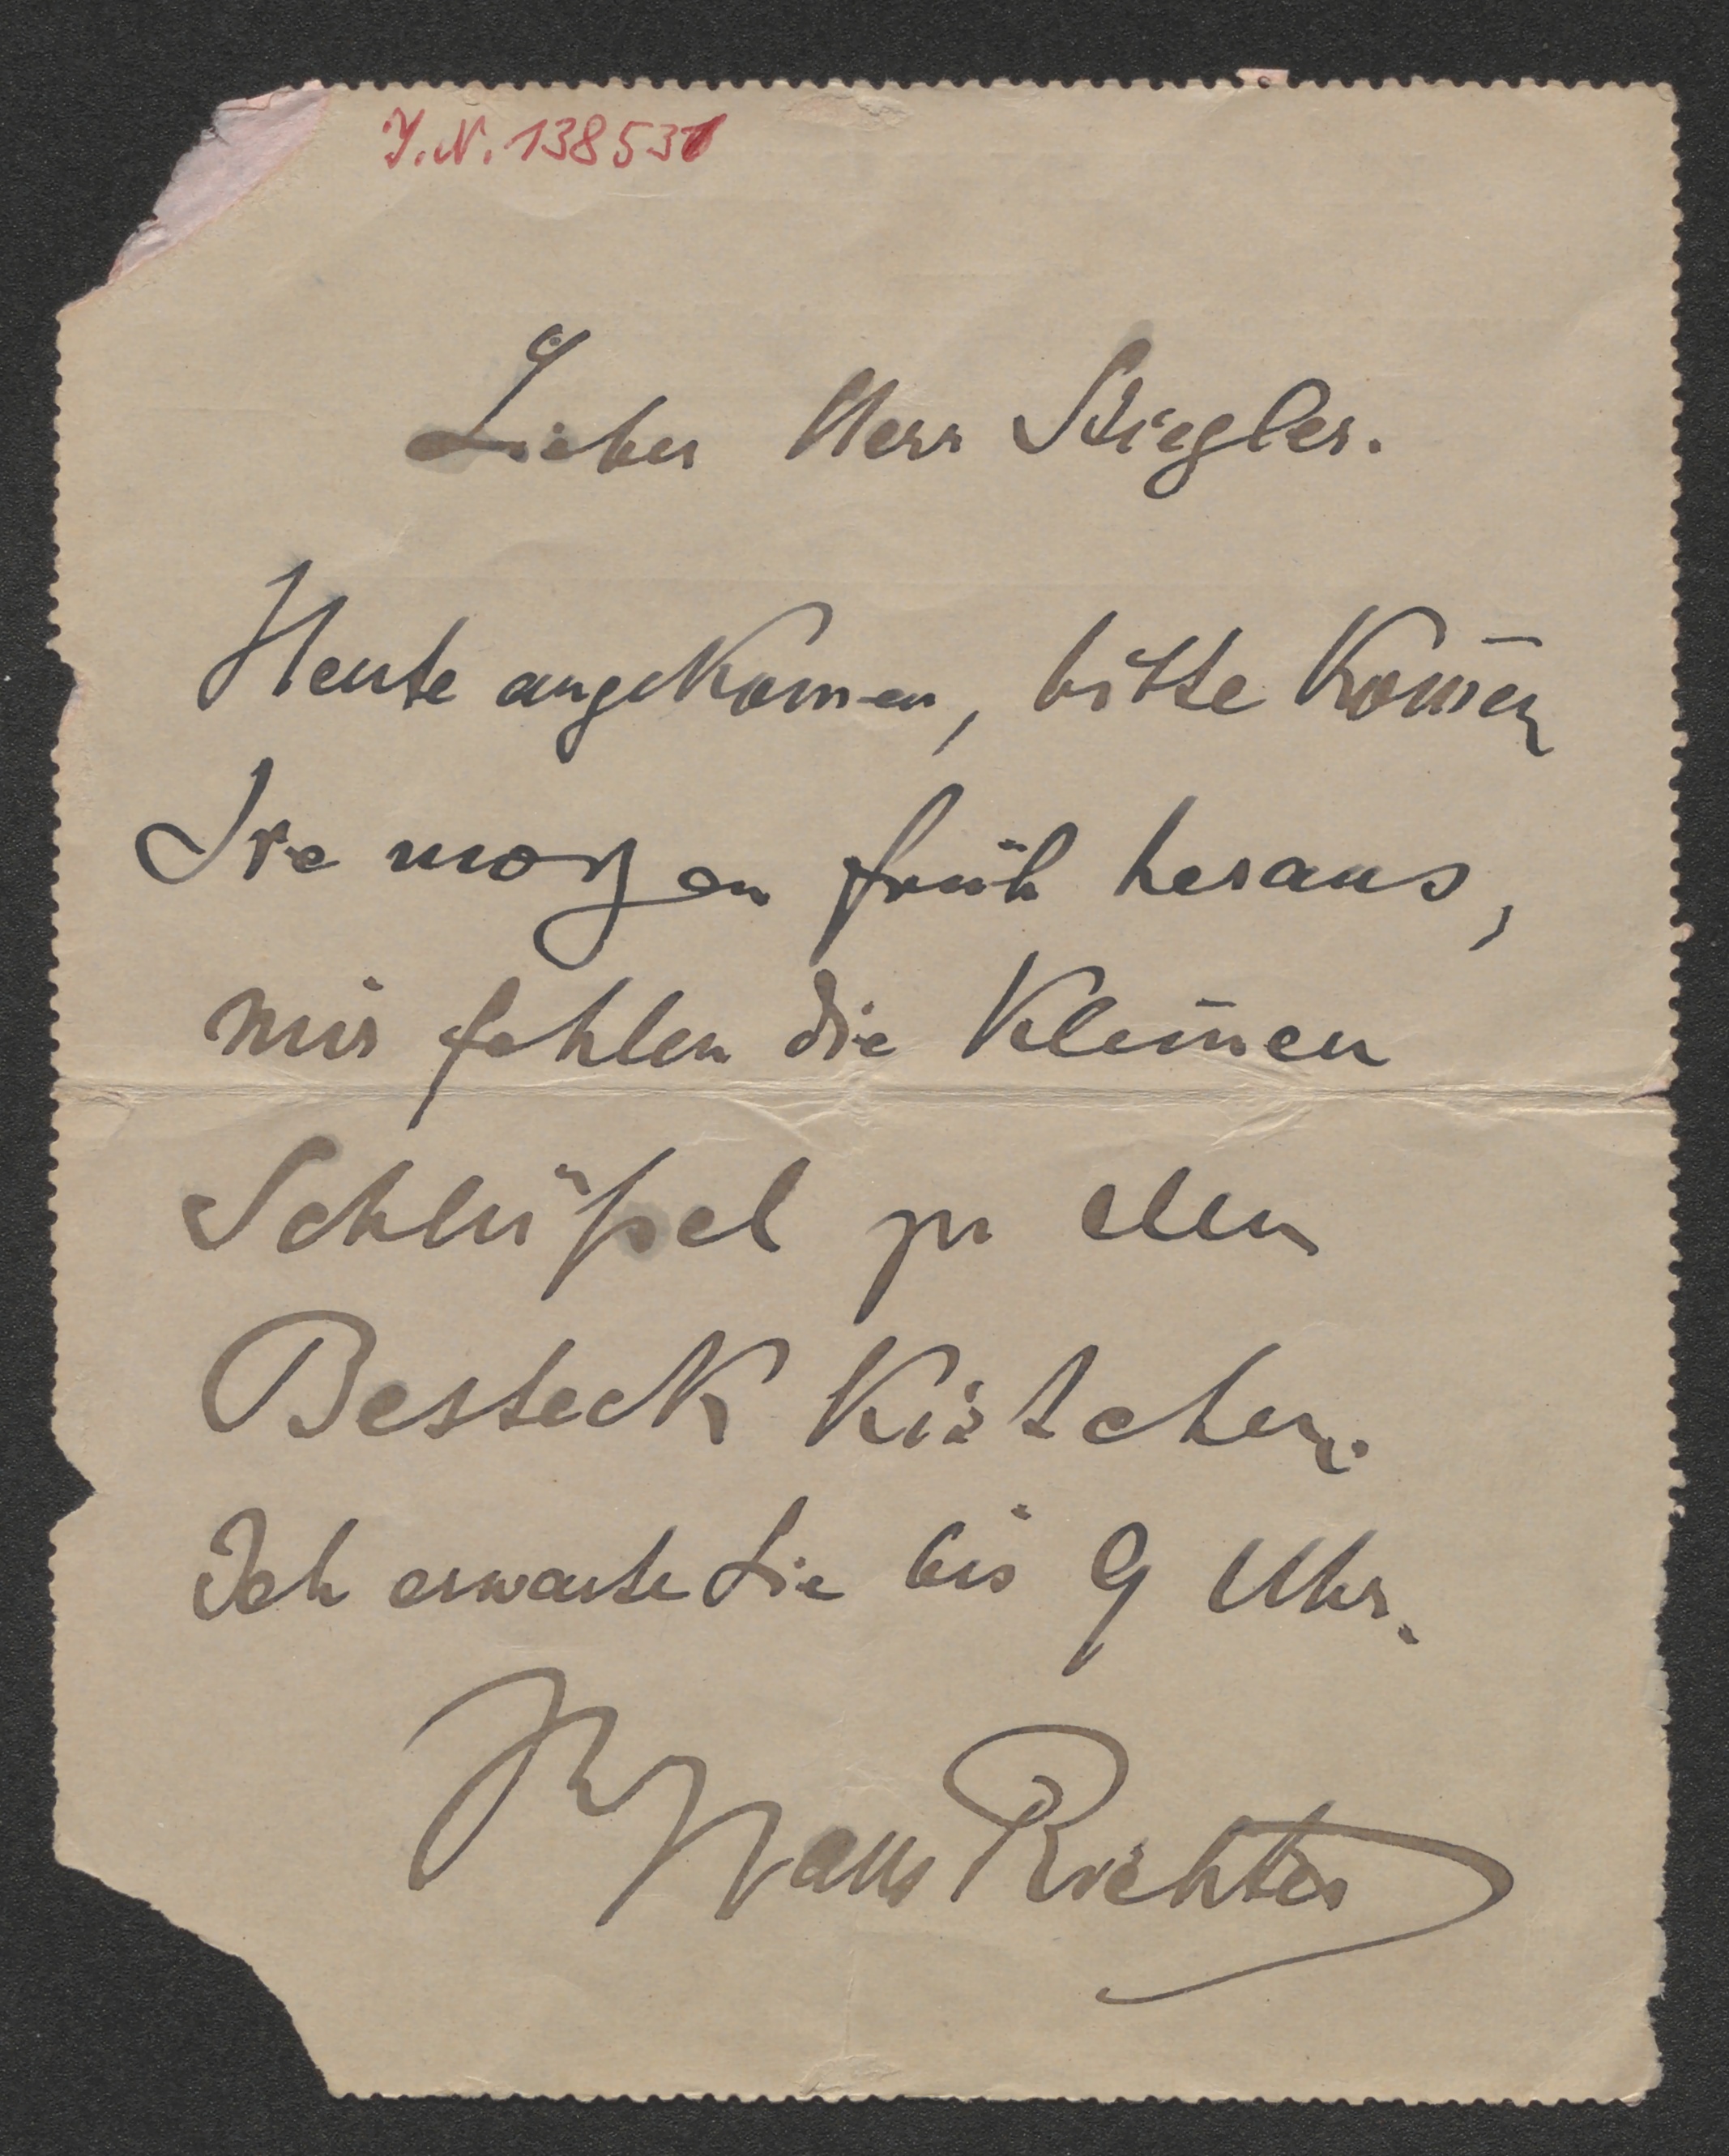 J.N. 138531
Lieber Herr Stiegler.
Heute angekommen, bitte kom̅en
Sie morgen früh heraus,
mir fehlen die kleinen
Schlüßel zu den
Besteck Kistchen.
Ich erwarte Sie bis 9 Uhr.
Hans Richter